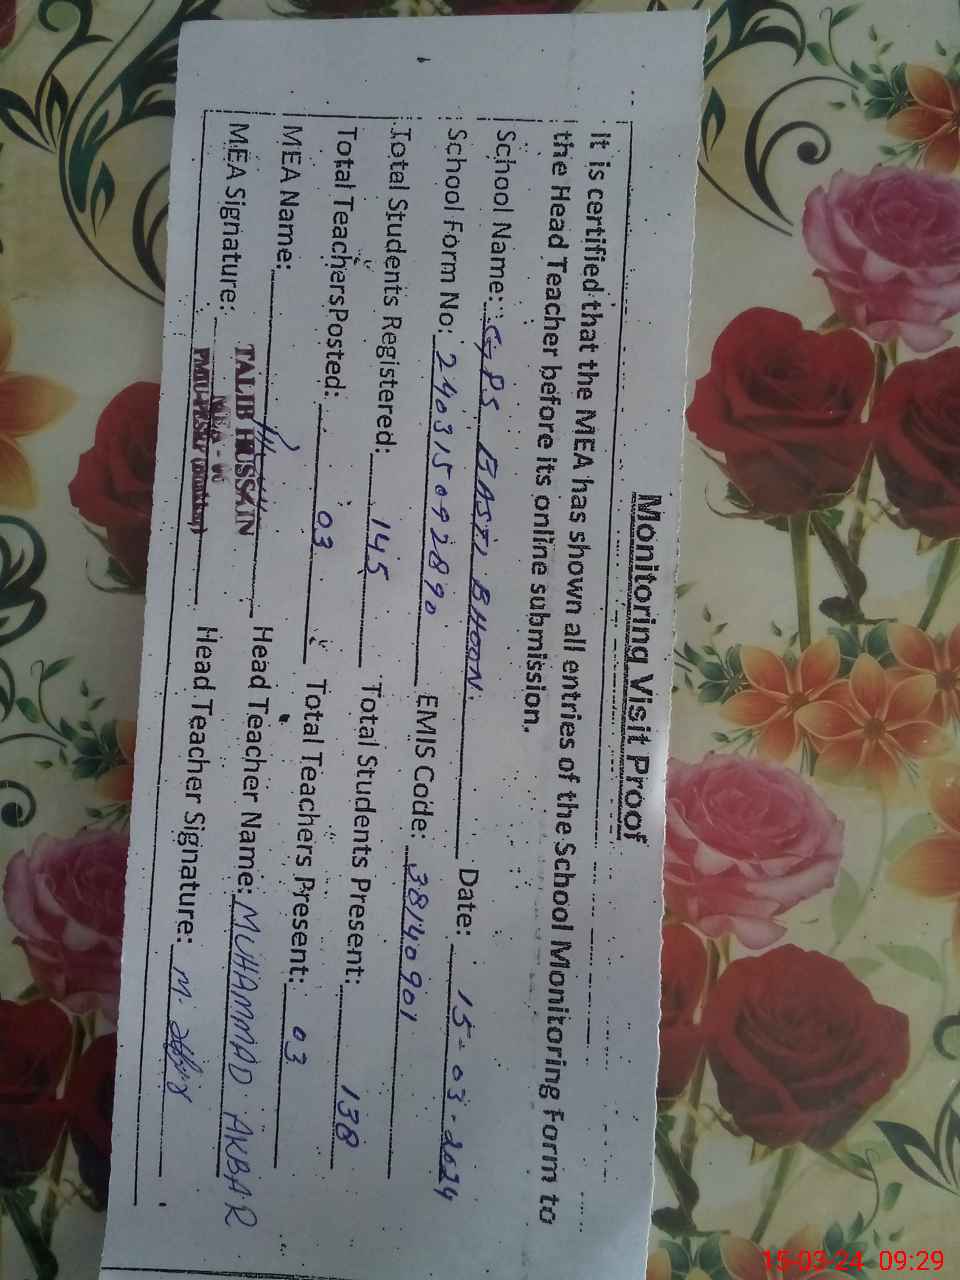 Monitoring Visit Proof
It is certified that the MEA has shown all entries of the School Monitoring Form to
the Head Teacher before its online submission.
School Name: GPS BASTI BHOON. Date: 15-03-2024
School Form No: 240315092890 EMIS Code: 38140901
Total Students Registered: 145 Total Students Present: 138
Total Teachers Posted: 03 Total Teachers Present: 03
MEA Name: TALIB HUSSAIN Head Teacher Name: MUHAMMAD AKBAR
MEA Signature: MEA Head Teacher Signature: M.
15-03-24 09:29